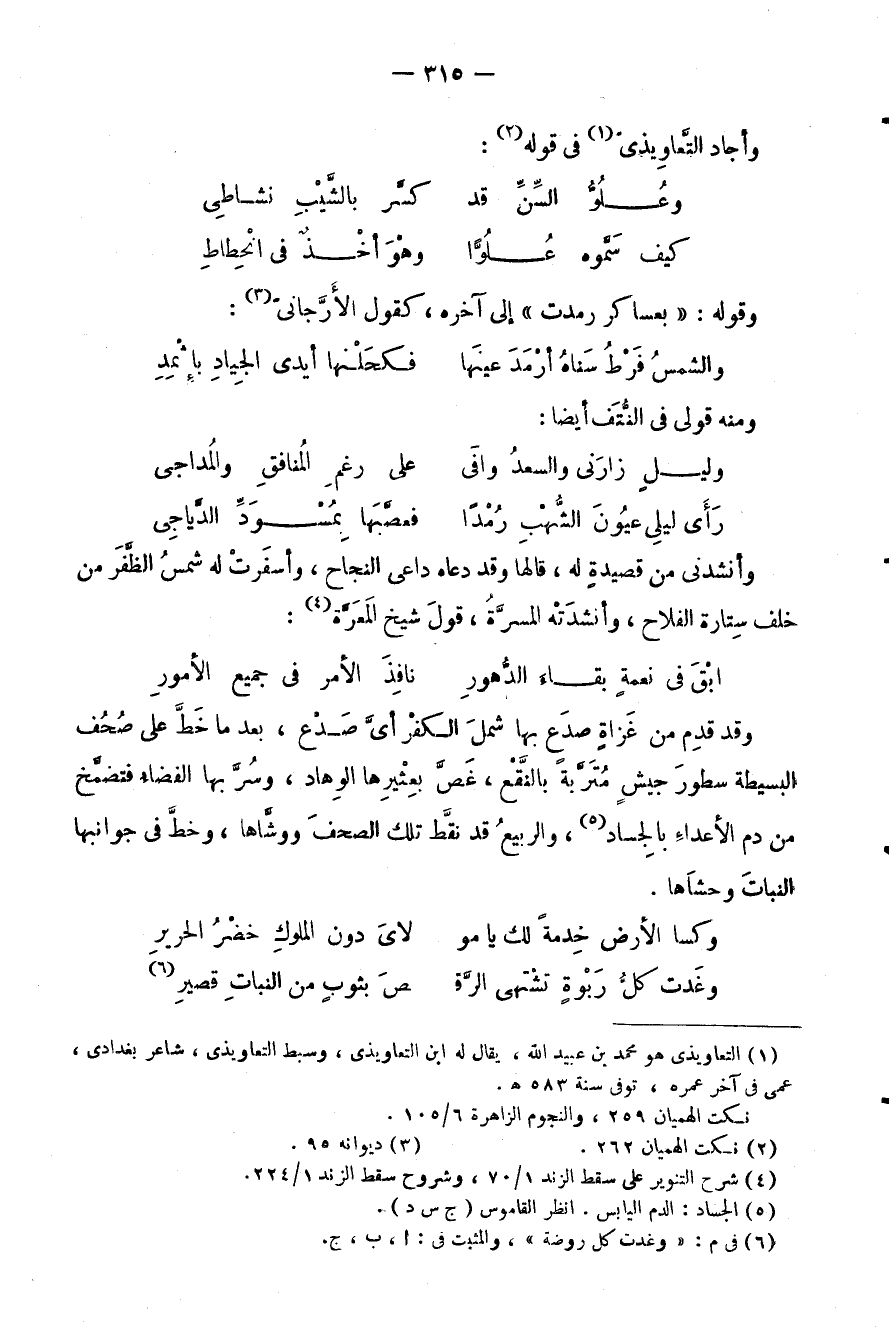 — ٣١٥ —
وأجاد التَّعاوِيذى(١) فى قوله(٢) :
وعُـلُوُّ السِّنِّ قد كسَّر بالشَّيْبِ نشاطِى
كيف سَمَّوه عُـلُوًّا وهْوَ أخْـذٌ فى انْحِطاطِ
وقوله : « بعساكر رمدت » إلى آخره ، كقول الأَرَّجانى(٣) :
والشمسُ فَرْطُ سَناهُ أرْمَدَ عينَها فكحَلْنها أيدى الجِيادِ بإثْمِدِ
ومنه قولى فى النُّتَف أيضا :
وليـلٍ زارَنى والسعدُ وافَى على رغمِ المُنافقِ والمُداجى
رَأَى ليلِى عيُونَ الشُّهْبِ رُمْدًا فعصَّبَها بِمُسْـوَدِّ الدَّياجِى
وأنشدنى من قصيدةٍ له ، قالها وقد دعاه داعى النجاح ، وأسفَرتْ له شمسُ الظَّفَر من
خلف سِتارة الفلاح ، وأنشدَتْه المسرَّةُ ، قولَ شيخ المَعَرَّة(٤) :
ابْقَ فى نعمةٍ بقـاءَ الدُّهورِ نافِذَ الأمر فى جميع الأمورِ
وقد قدِم من غَزاةٍ صدَع بها شملَ الكفْر أىَّ صَدْع ، بعد ما خَطَّ على صُحُف
البسيطة سطورَ جيشٍ مُتَرَّبةً بالنَّقْع ، غَصَّ بعِثْيرِها الوِهاد ، وسُرَّ بها الفضاء فتضمَّخ
من دم الأعداءِ بالجِساد(٥) ، والربيعُ قد نقَّط تلك الصحفَ ووشَّاها ، وخطَّ فى جوانبها
النباتَ وحشَاها .
وكسا الأرضَ خِدمةً لك يا مو لاىَ دون الملوكِ خضْرُ الحريرِ
وغَدت كلُّ رَبْوةٍ تشْتهى الرَّقـ ـصَ بثوبٍ من النباتِ قصيرِ(٦)
(١) التعاويذى هو محمد بن عبيد الله ، يقال له ابن التعاويذى ، وسبط التعاويذى ، شاعر بغدادى ،
عمى فى آخر عمره ، توفى سنة ٥٨٣ هـ .
نكت الهميان ٢٥٩ ، والنجوم الزاهرة ١٠٥/٦ .
(٢) نكت الهميان ٢٦٢ . (٣) ديوانه ٩٥ .
(٤) شرح التنوير على سقط الزند ٧٠/١ ، وشروح سقط الزند ٢٢٤/١.
(٥) الجساد : الدم اليابس . انظر القاموس ( ج س د ) .
(٦) فى م : « وغدت كل روضة » ، والمثبت فى : ا ، ب ، ج.